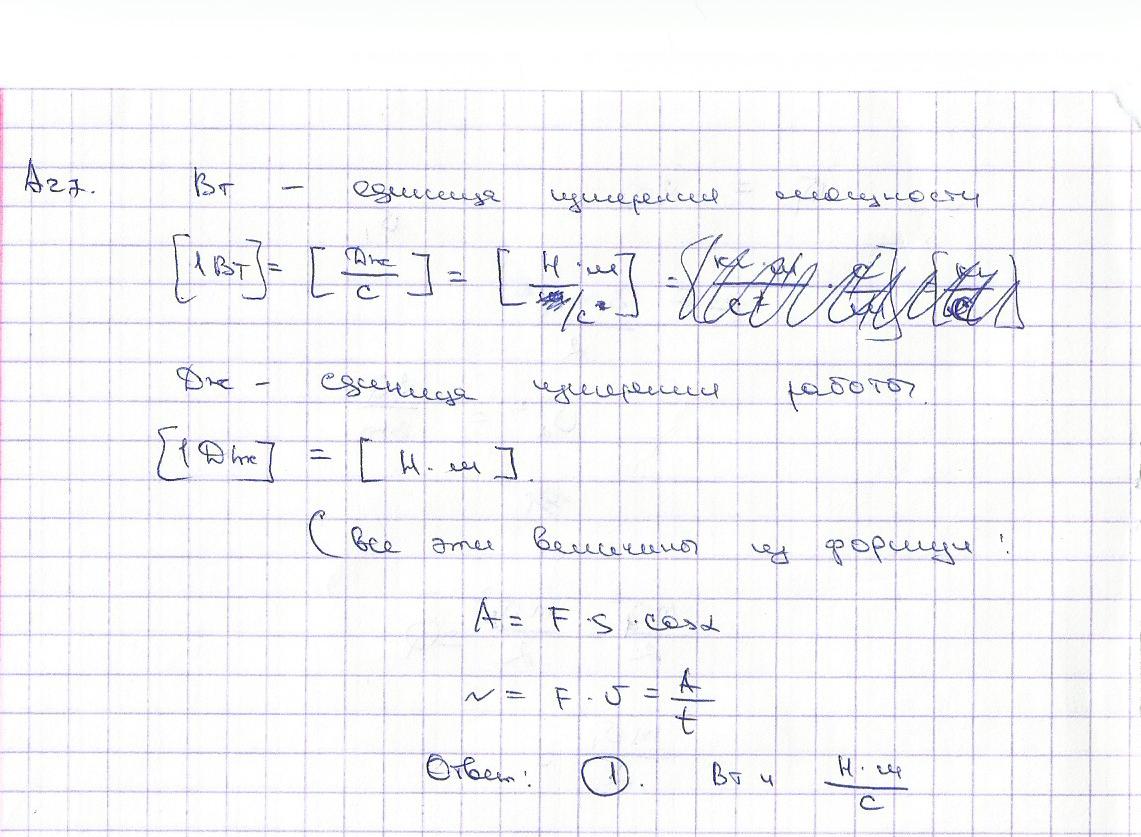 A27. Вт – единица измерения мощности
[1 Вт] = [Дж/с] = [Н·м/с] =
Дж – единица измерения работы.
[1 Дж] = [Н·м].
(все эти величины из формул:
A = F·S·cosα
N = F·υ = A/t
Ответ: 1. Вт и Н·м/с